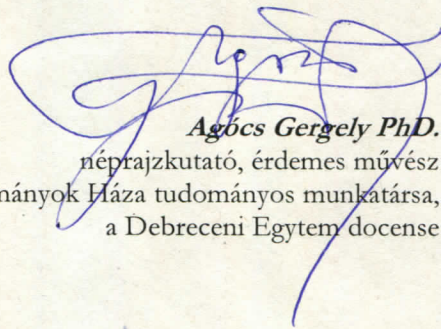 Agócs Gergely PhD.
néprajzkutató, érdemes művész
mányok Háza tudományos munkatársa,
a Debreceni Egytem docense